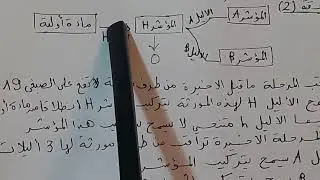 (2)
مادة أولية H المؤشر H الأليل A المؤشر A
O الأليل B المؤشر B
المرحلة ما قبل الأخيرة من طرف مورثة تقع على الصبغي 19
الأليل H لهذه المورثة بتركيب المؤشر H انطلاقا من مادة أولية
الأليل h متنحي لا يسمح بتركيب هذا المؤشر
المرحلة الأخيرة تراقب من طرف مورثة لها 3 أليلات
A يسمح بتركيب المؤشر